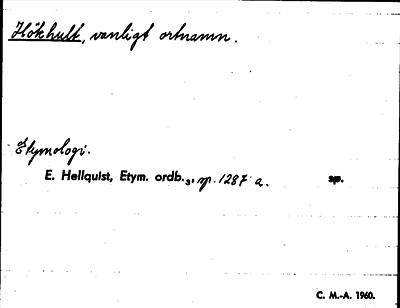 Hökhult, vanligt ortnamn.
Etymologi.
E. Hellquist, Etym. ordb.₃, sp. 1287 a. sp.
C. M.-A. 1960.